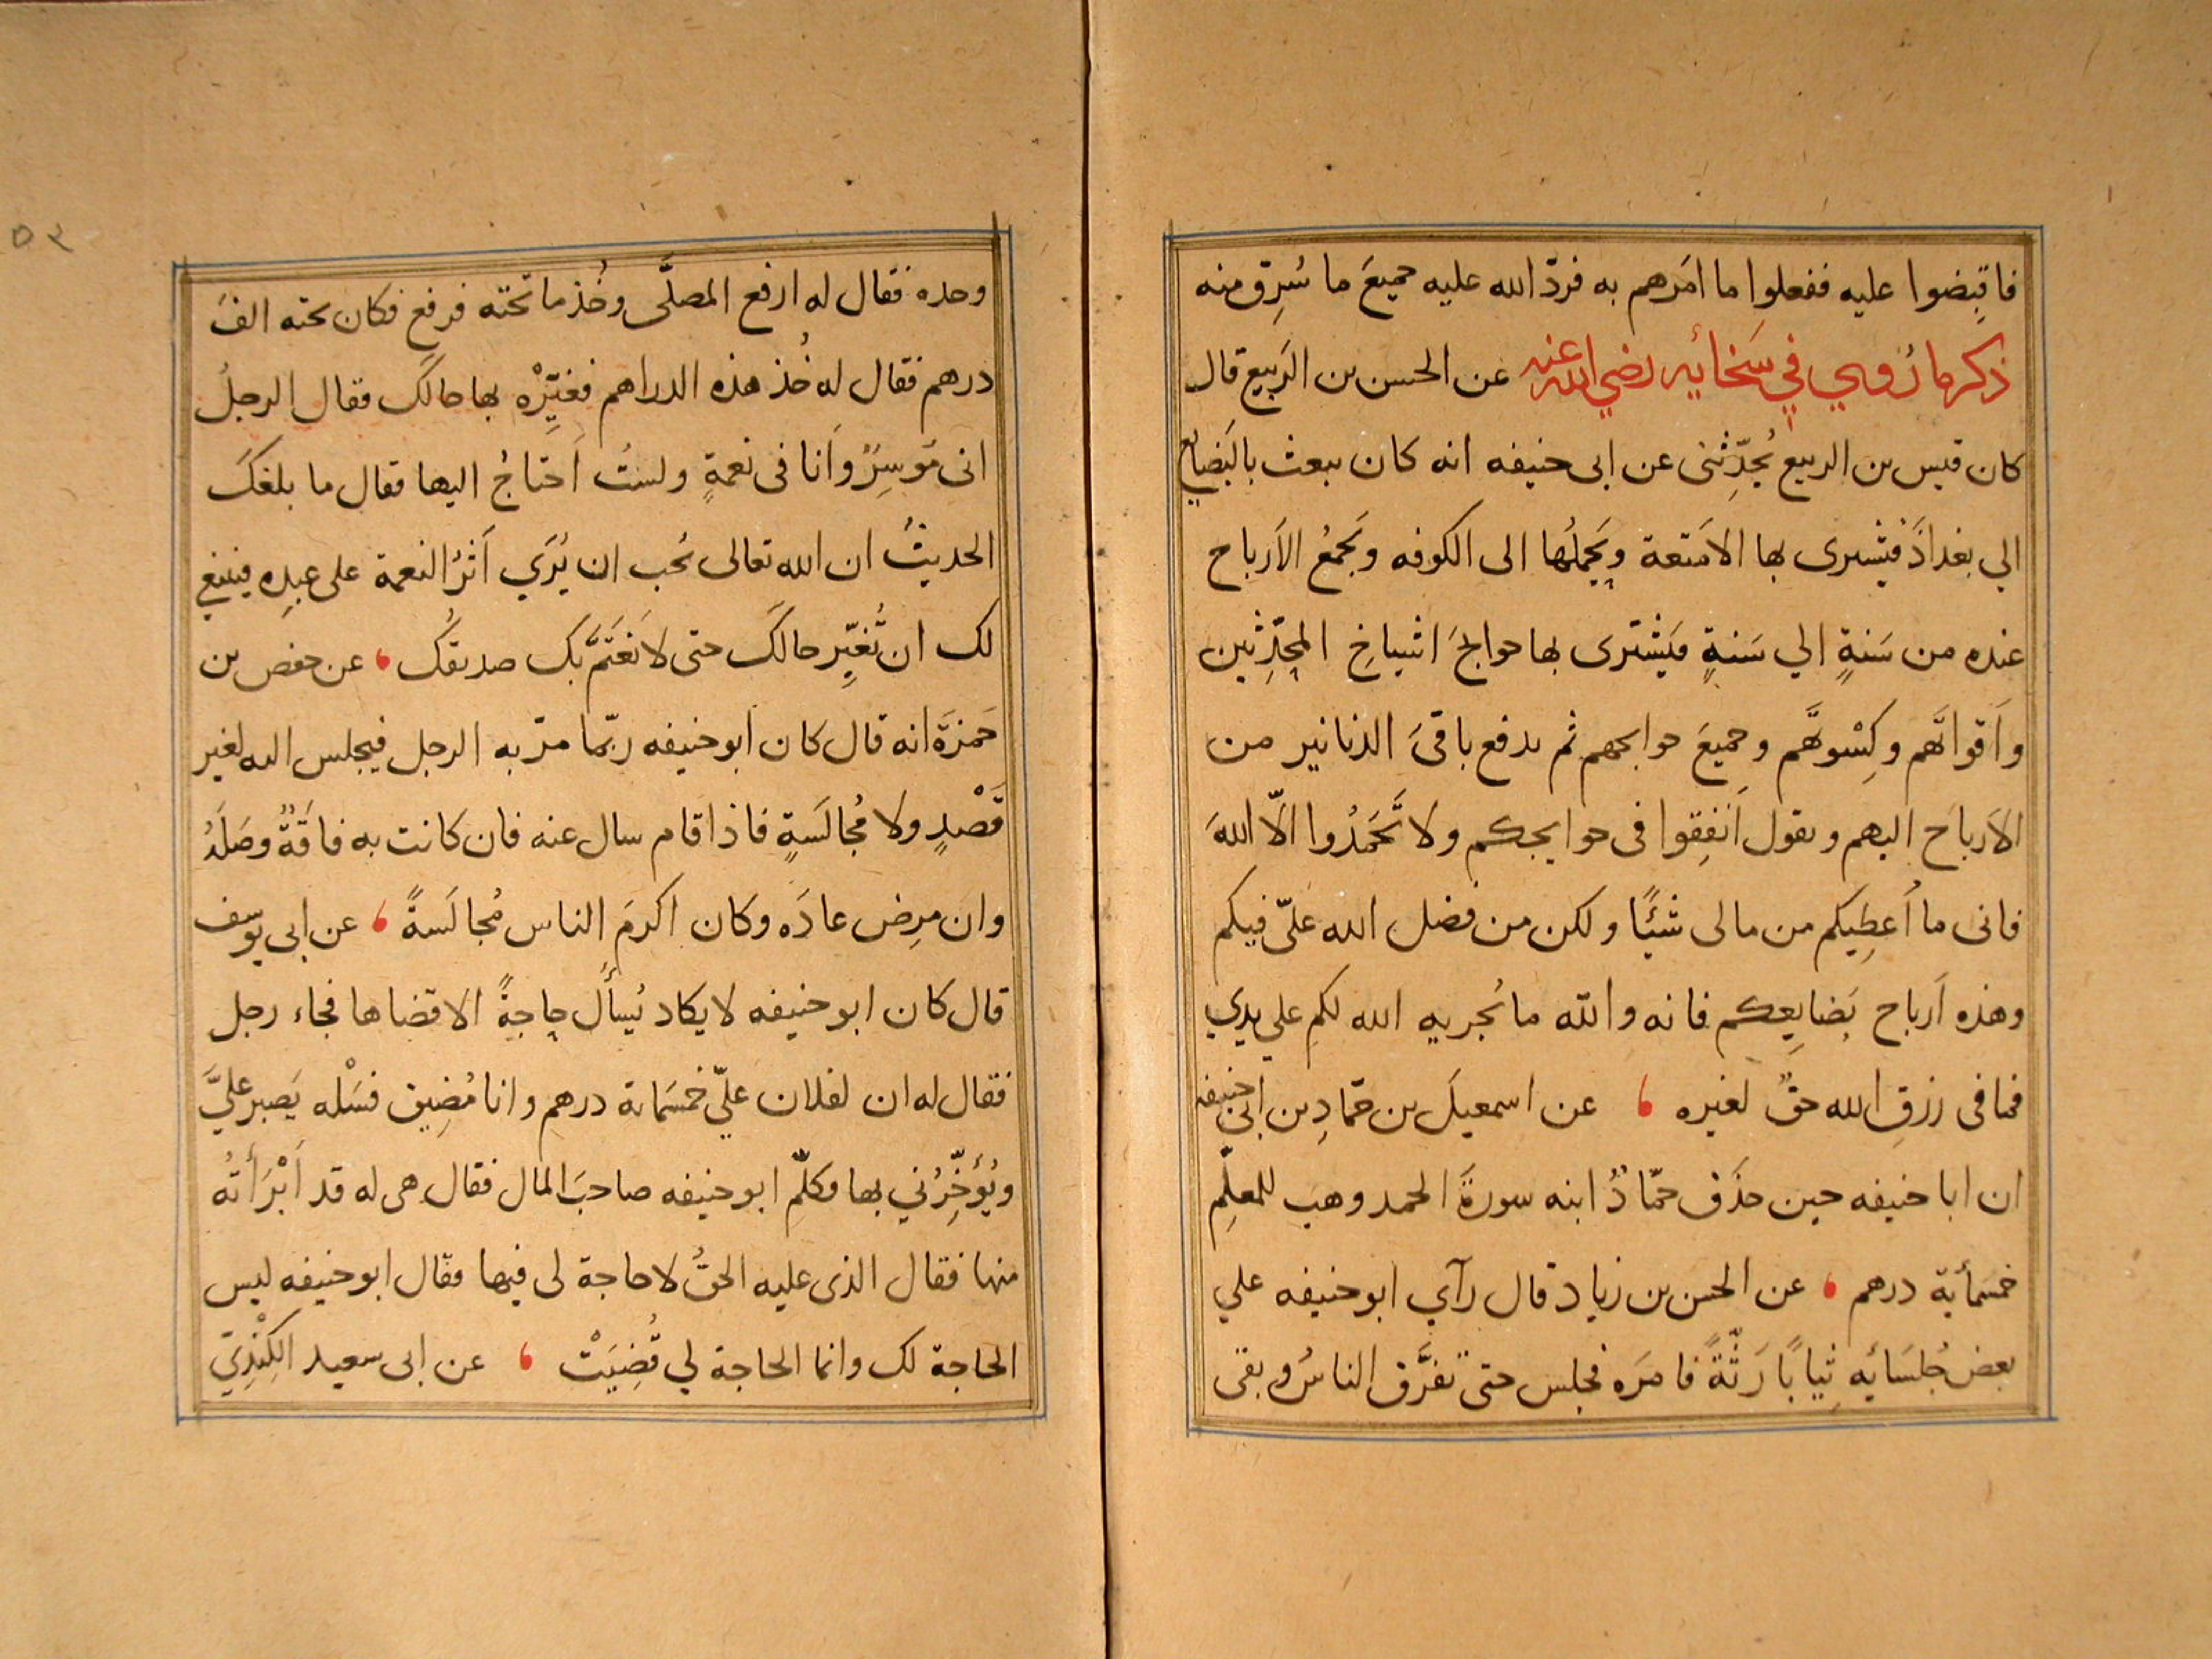 فاقبِضوا عليه ففعلوا ما امَرهم به فردّ الله عليه جميعَ ما سُرِق منه
ذكر ما رُوي في سَخائه رضي الله عنه عن الحسن بن الرَبيع قال
كان قيس بن الربيع يُحدِّثنى عن ابى حنيفه انه كان يبعث بالبَضايع
الي بغدادَ فيشترى بها الامَتعة ويَحملُها الى الكوفه ويَجمعُ الاَرباح
عنده من سَنةٍ الي سَنةٍ فيَشترى بها حوايجَ اشياخِ المحدِّثين
واَقواتَهم وكِسْوتَهم وجميعَ حوايجهم ثم يدفع باقىَ الدنانير من
الاَرباح اليهم ويقول اَنفِقوا فى حوايجكم ولا تَحمَدُوا الّا اللهَ
فانى ما اُعطِيكم من مالى شئًا ولكن من فضل الله علىّ فيكم
وهذه اَرباح بَضايعِكم فانه والله ما يُجريه الله لكم علي يدي
فما فى رزقِ الله حقٌ لغيره ، عن اسمعيلَ بن حمّادِ بن ابى حنيفه
ان ابا حنيفه حين حذَق حمّادٌ ابنه سورةَ الحمد وهب للمعلِّم
خمسَمأية درهم ، عن الحسن بن زياد قال رآي ابو حنيفه علي
بعض جُلسَائِه ثِيابًا رَثّةً فامَره فجلس حتى تفرَّق الناسُ وبقى
٥٣
وحده فقال له ارفع المصلَّى وخُذ ما تحته فرفع فكان تحته الفَ
درهم فقال له خُذ هذه الدراهم فغيِّرْه بها حالَك فقال الرجلُ
انى مُوسِرٌ وَاَنا فى نعمةٍ ولستُ اَحتاجُ اليها فقال ما بلغكَ
الحديثُ ان الله تعالى يُحب ان يُرَي اَثرُ النعمة على عبدِه فينبغي
لك ان تُغيِّر حالَكَ حتى لا يَغتَمَّ بكَ صديقُك ، عن حفص بن
حَمزَة انه قال كان ابو حنيفه ربّما مرّ به الرجل فيجلس اليه لغير
قَصْدٍ ولا مُجالَسةٍ فاذا قام سال عنه فان كانت به فاقَةٌ وصَلَهُ
وان مرِض عادَه وكان اكرمَ الناس مُجالَسةً ، عن ابى يوسف
قال كان ابو حنيفه لا يكاد يُسأَل حاجةً الا قضاها فجاء رجل
فقال له ان لفلان عليّ خمسَماية درهم وانا مُضِيق فسَلْه يَصبر عليَّ
ويُؤَخِّرُني بها فكلّم ابو حنيفه صاحبَ المال فقال هى له قد اَبْرَأتُه
منها فقال الذى عليه الحقُ لا حاجة لى فيها فقال ابو حنيفه ليس
الحاجة لك وانما الحاجة لي قُضِيَتْ ، عن ابى سعيد الكِنْدِيّ